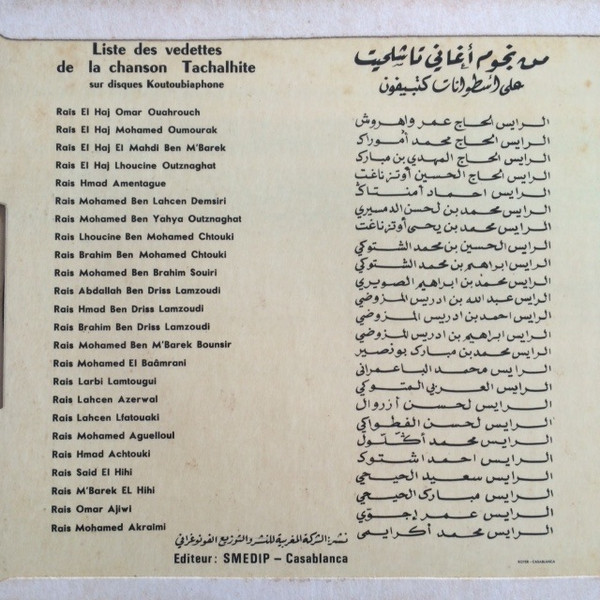 Liste des vedettes
de la chanson Tachalhite
sur disques Koutoubiaphone
Rais El Haj Omar Ouahrouch
Rais El Haj Mohamed Oumourak
Rais El Haj El Mahdi Ben M'Barek
Rais El Haj Lhoucine Outznaghat
Rais Hmad Amentague
Rais Mohamed Ben Lahcen Demsiri
Rais Mohamed Ben Yahya Outznaghat
Rais Lhoucine Ben Mohamed Chtouki
Rais Brahim Ben Mohamed Chtouki
Rais Mohamed Ben Brahim Souiri
Rais Abdallah Ben Driss Lamzoudi
Rais Hmad Ben Driss Lamzoudi
Rais Brahim Ben Driss Lamzoudi
Rais Mohamed Ben M'Barek Bounsir
Rais Mohamed El Baâmrani
Rais Larbi Lamtougui
Rais Lahcen Azerwal
Rais Lahcen Lfatouaki
Rais Mohamed Aguelloul
Rais Hmad Achtouki
Rais Said El Hihi
Rais M'Barek EL Hihi
Rais Omar Ajiwi
Rais Mohamed Akraimi
من نجوم أغاني تاشلحيت
على أسطوانات كتبيفون
الرايس الحاج عمر واهروش
الرايس الحاج محمد أموراك
الرايس الحاج المهدي بن مبارك
الرايس الحاج الحسين أوتزناغت
الرايس احماد أمنتاك
الرايس محمد بن لحسن الدمسيري
الرايس محمد بن يحي أوتزناغت
الرايس الحسين بن محمد الشتوكي
الرايس ابراهيم بن محمد الشتوكي
الرايس محمد بن ابراهيم الصويري
الرايس عبد الله بن ادريس المزوضي
الرايس احمد بن ادريس المزوضي
الرايس ابراهيم بن ادريس المزوضي
الرايس محمد بن مبارك بونصير
الرايس محمد الباعمراني
الرايس العربي المتوكي
الرايس لحسن أزروال
الرايس لحسن الفطواكي
الرايس محمد أكلول
الرايس احمد اشتوك
الرايس سعيد الحيحي
الرايس مبارك الحيحي
الرايس عمر إجوي
الرايس محمد أكرايمي
نشر: الشركة المغربية للنشر والتوزيع الفونوغرافي
Editeur: SMEDIP – Casablanca